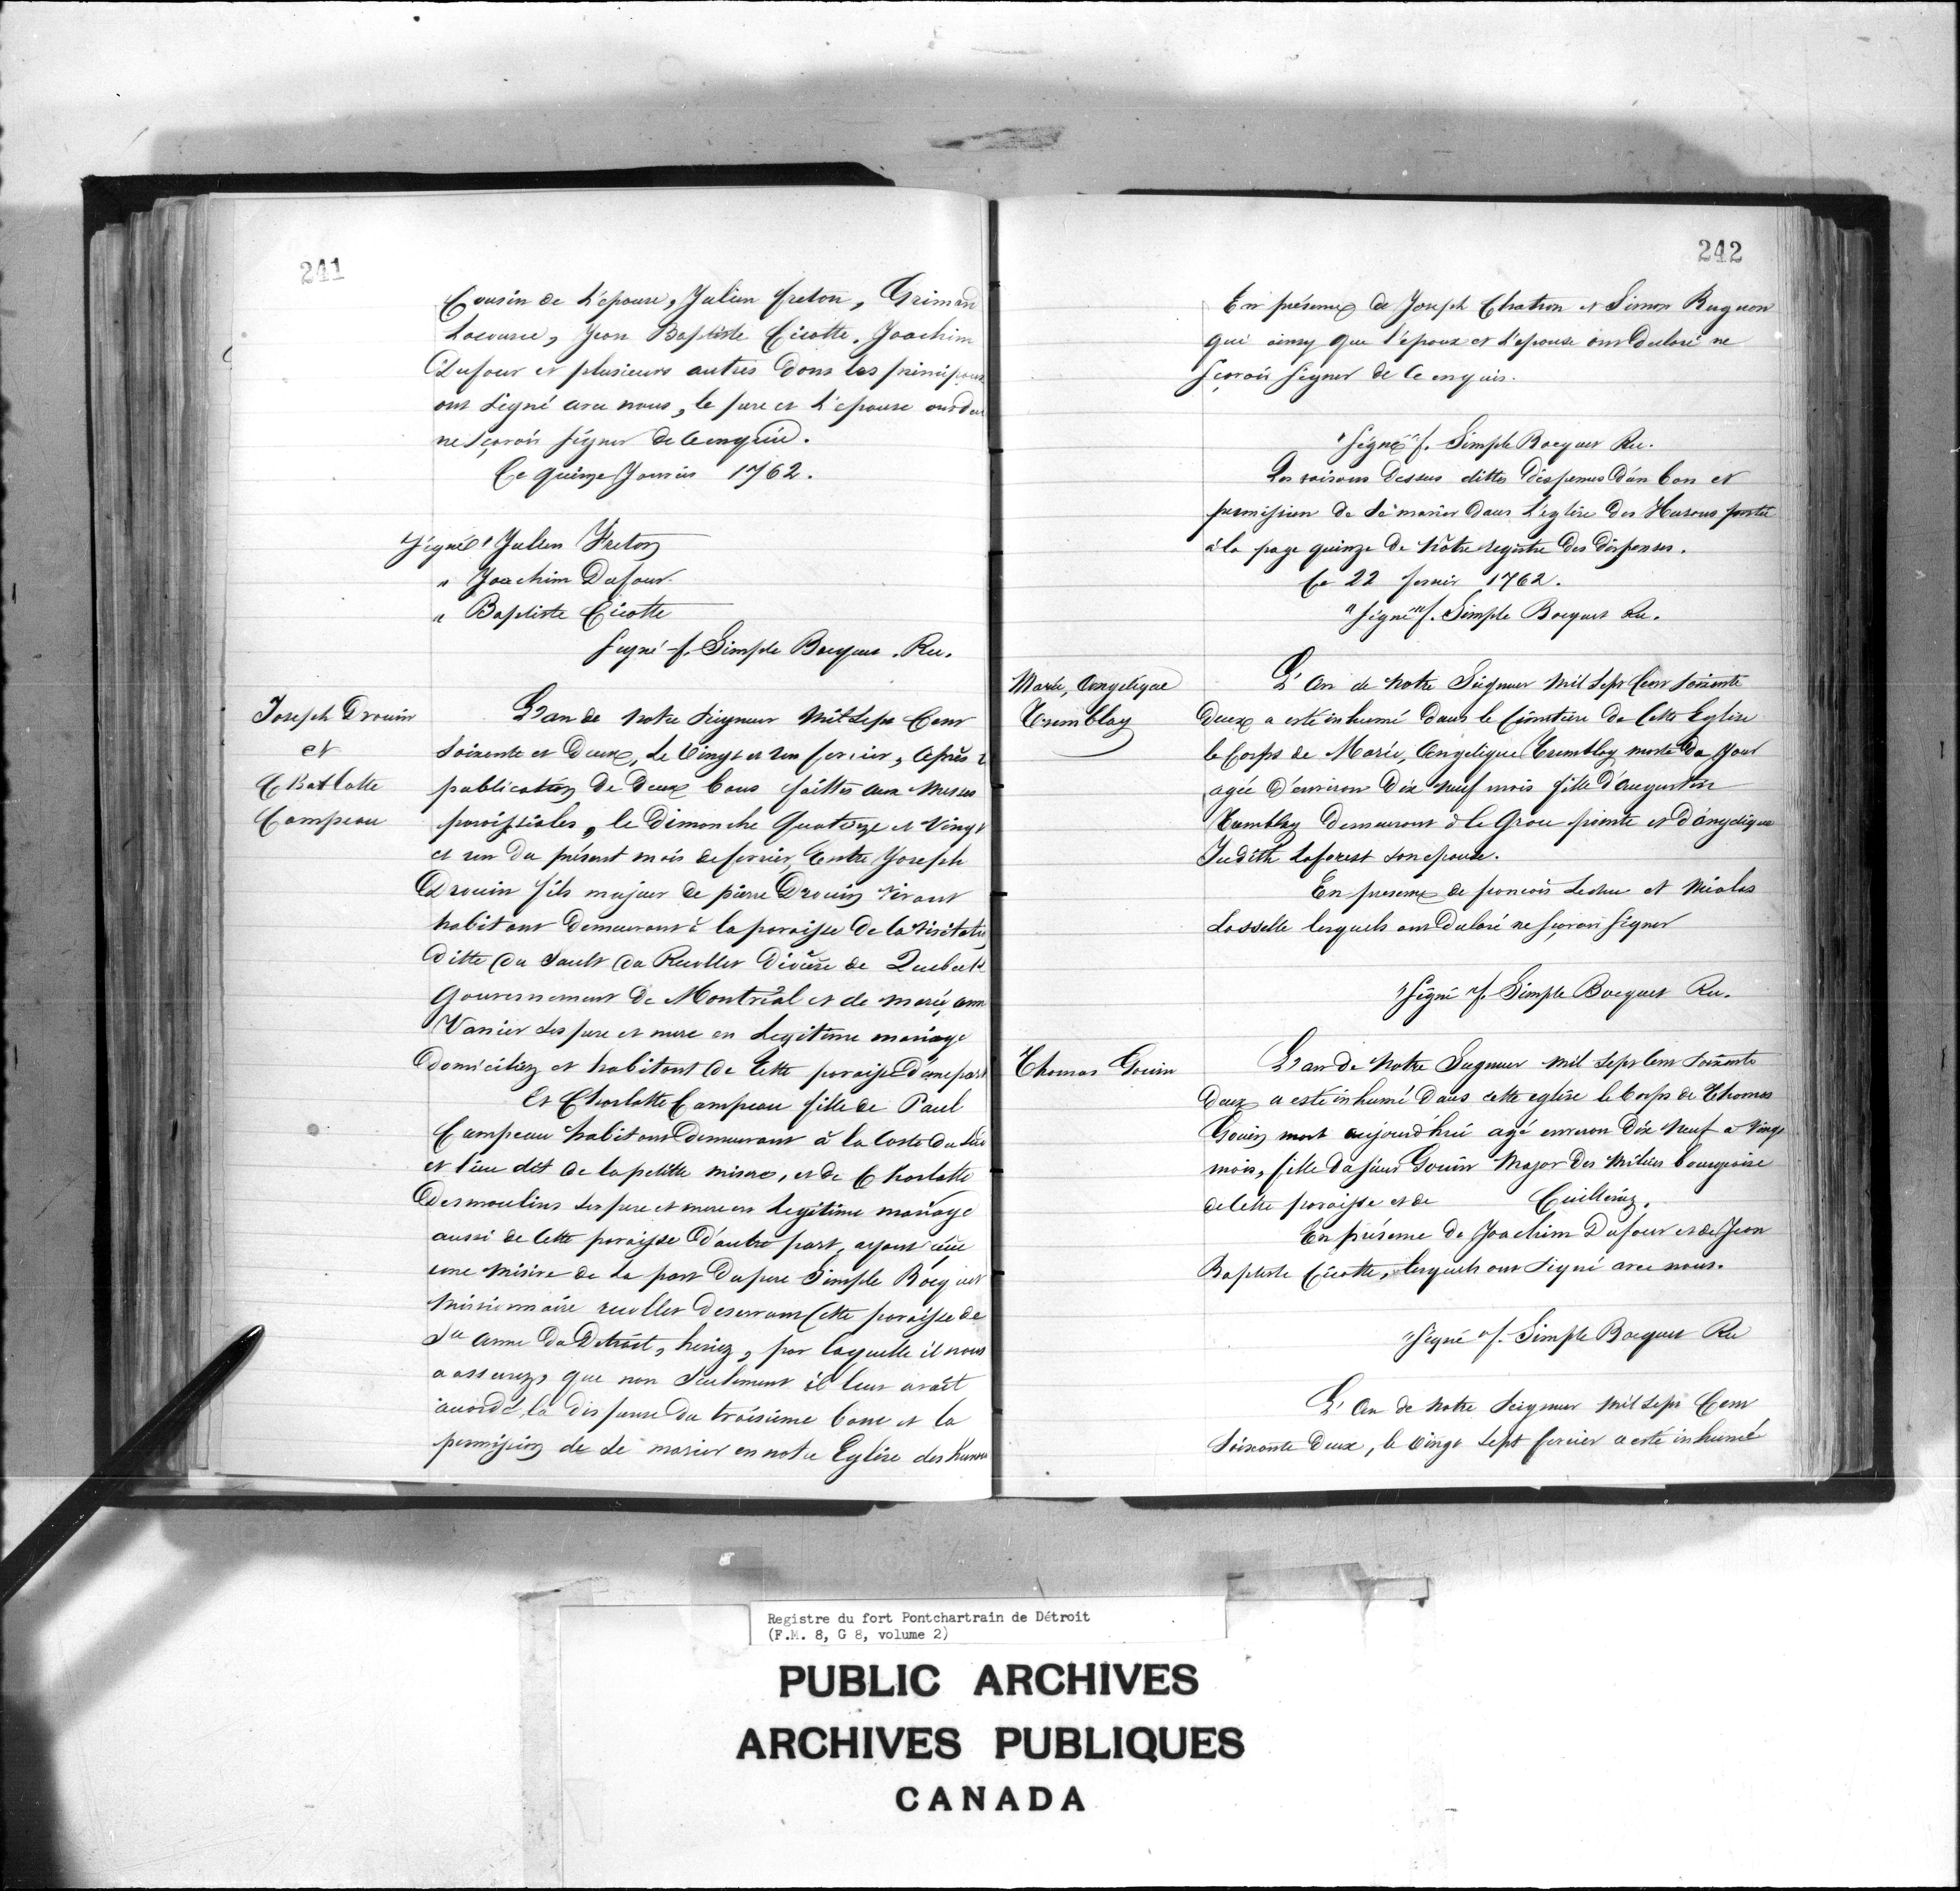 241
Cousin de L'epouse, Julien freton, Grimard
Lacource, Jean Baptiste Cicotte, Joachim
Dufour et plusieurs autres dons les principaux
ont signé avec nous, le pere et L'epouse
ne sçavoir signer de ce enquis.
Ce quinze Janvier 1762.
Signé " Julien Freton
" Joachim Dufour
" Baptiste Cicotte
Signé f. Simple Bocquet. Rec.
Joseph Drouin
et
Charlotte
Campeau
L'an de notre Seigneur Mil Sept Cent
Soixente et Deux, Le Vingt et un fevrier, Après
publication de Deux bans faittes aux Messes
paroissiales, le Dimanche Quatorze et Vingt
et un du présent mois de fevrier, Entre Joseph
Drouin fils majeur de pierre Drouin vivant
habitant demeurant à la paroisse de la Visitation
Ditte du Sault au Recollet Diocèse de Quebec
Gouvernement de Montréal et de marie, ann
Vanier ses pere et mere en Legitime mariage
Domiciliez et habitant de Cette paroisse d'une part
Et Charlotte Campeau fille de Paul
Campeau habitant Demeurant à la Coste du Su
et lieu dit de la petitte misere, et de Charlotte
Desmoulins ses pere et mere en Legitime mariage
aussi de Cette paroisse D'autre part, ayant
une Misive de La part Du pere Simple Bocquet
Missionnaire recollet Deservant Cette paroisse de
Ste anne Du Detroit, par laquelle il nous
a assurez, que non Seulement il leur avait
accordé la dispense Du troisième banc et la
permission de Se marier en notre Eglise des hurons
242
En présence de Joseph Chatron et Simon
qui ainsy que l'époux et L'epouse ont Declaré ne
sçavoir signer de Ce enquis.
"Signé" f. Simple Bocquet Rec.
Les raisons Dessus dittes Dispenses D'un ban et
permission de Se marier Dans L'eglise Des Hurons portée
à la page quinze De Nôtre registre Des Dispenses.
Ce 22 fevrier 1762.
"Signé" f. Simple Bocquet Rec.
Marie, Angelique
Tremblay
L'An de Notre Seigneur Mil Sept Cent Soixente
Deux a esté inhumé Dans le Cimetiere De Cette Eglise
le Corps de Marie, Angelique Tremblay morte Du Jour
agée D'environ Dix Neuf mois fille D'augustin
Tremblay Demeurant à la Grosse pointe et D'angelique
Judith Laforest son epouse.
En presence de francois Leduc et Nicolas
Lasselle lesquels ont Declaré ne sçavoir signer
"Signé" f. Simple Bocquet Rec.
Thomas Gouin
L'an de Notre Seigneur Mil Sept Cent Soixente
Deux a esté inhumé Dans cette eglise le Corps de Thomas
Gouin mort aujourd'hui agé environ Dix Neuf a Vingt
mois, fille Du sieur Gouin Major Des Milices bourgeoise
de Cette paroisse et de Cuillerier.
En présence De Joachim Dufour et de Jean
Baptiste Cicotte, lesquels ont Signé avec nous.
"Signé" f. Simple Bocquet Rec
L'An de Notre Seigneur Mil Sept Cent
Soixante Deux, le Vingt Sept fevrier a esté inhumé
Registre du fort Pontchartrain de Détroit
(F.M. 8, G 8, volume 2)
PUBLIC ARCHIVES
ARCHIVES PUBLIQUES
CANADA